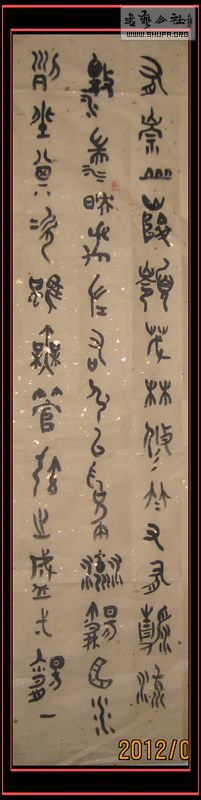 有崇山峻領茂林修竹又有清流
激湍映帶左右引以為流觴曲水
列坐其次雖無絲竹管弦之盛一觴一
書藝公社
WWW.SHUFA.ORG
2012/0